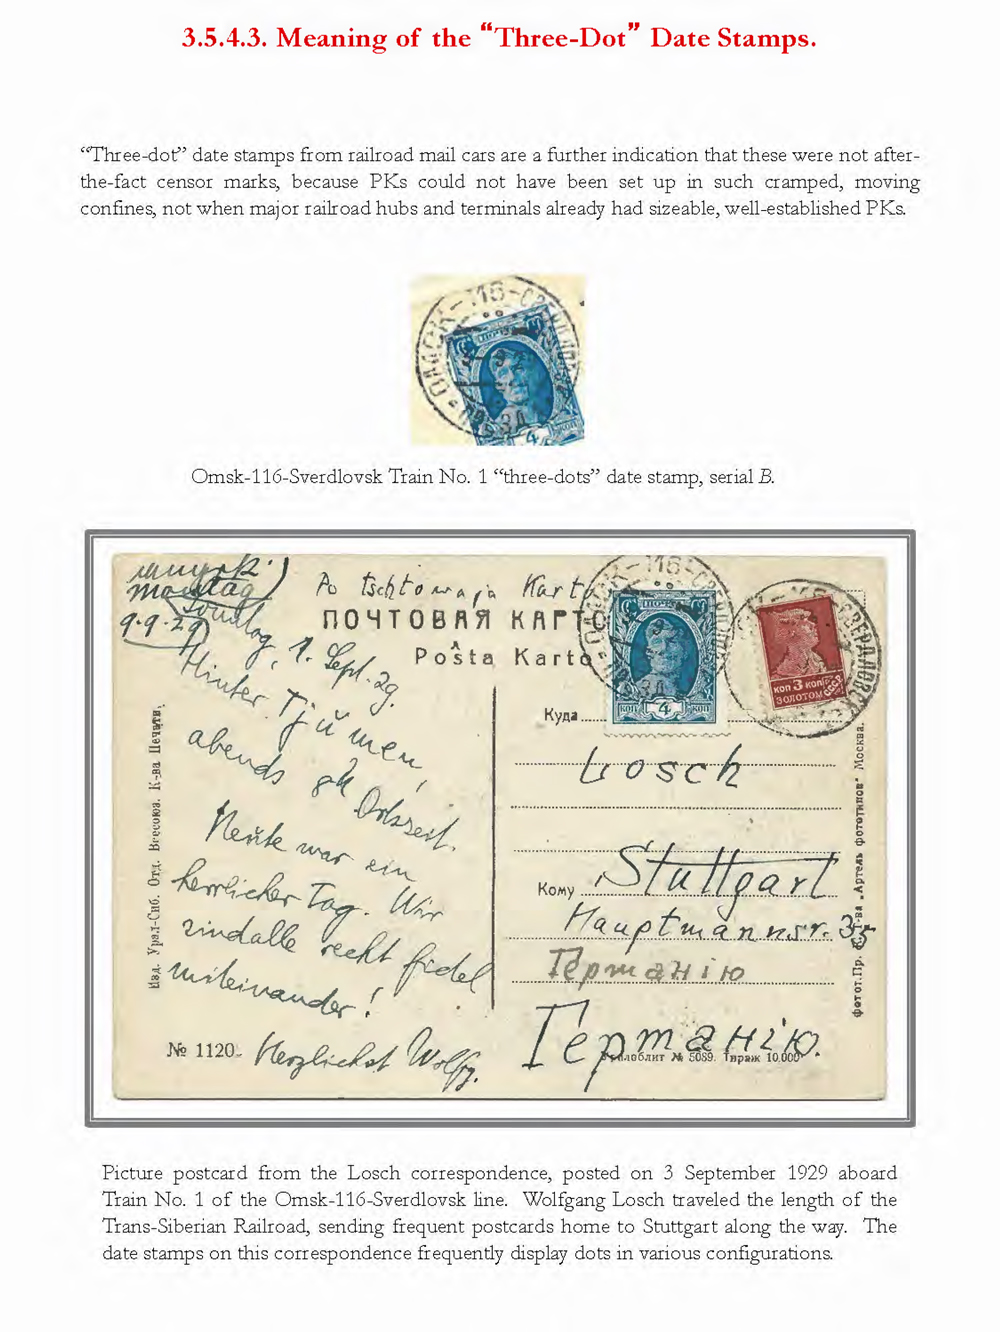 3.5.4.3. Meaning of the “Three-Dot” Date Stamps.
“Three-dot” date stamps from railroad mail cars are a further indication that these were not after-
the-fact censor marks, because PKs could not have been set up in such cramped, moving
confines, not when major railroad hubs and terminals already had sizeable, well-established PKs.
Omsk-116-Sverdlovsk Train No. 1 “three-dots” date stamp, serial B.
Montag
9.9.29
Sonntag, 1. Sept. 29.
Hinter Tjumen,
abends 8h Ortszeit.
Heute war ein
herrlicher Tag. Wir
sind alle recht fidel
miteinander!
Herzlichst Wolfg.
Potschtowaja Karto
ПОЧТОВАЯ КАРТО
Poŝta Karto
Куда
Losch
Кому
Stuttgart
Hauptmannsr. 35
Германiю
Германiю.
№ 1120.
Изд. Урал-Сиб. Отд. Всесоюз. К-ва Печати.
4
коп коп
коп 3 коп
ЗОЛОТОМ СССР
№ 5089. Тираж 10.000
"Артель фототипов" Москва.
Picture postcard from the Losch correspondence, posted on 3 September 1929 aboard
Train No. 1 of the Omsk-116-Sverdlovsk line. Wolfgang Losch traveled the length of the
Trans-Siberian Railroad, sending frequent postcards home to Stuttgart along the way. The
date stamps on this correspondence frequently display dots in various configurations.